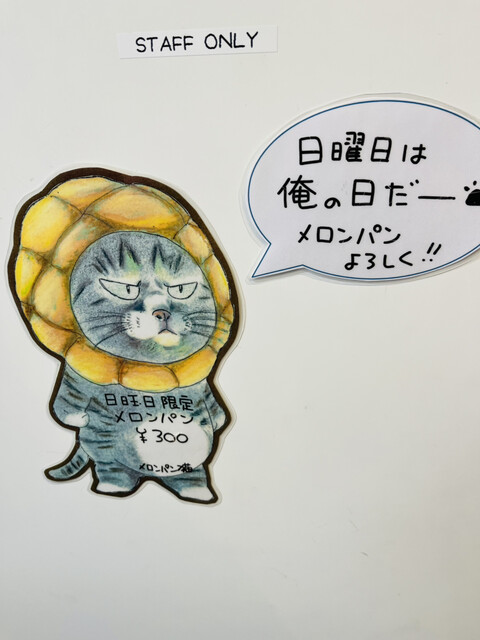 STAFF ONLY
日曜日は
俺の日だー
メロンパン
よろしく!!
日曜日限定
メロンパン
¥300
メロンパン猫